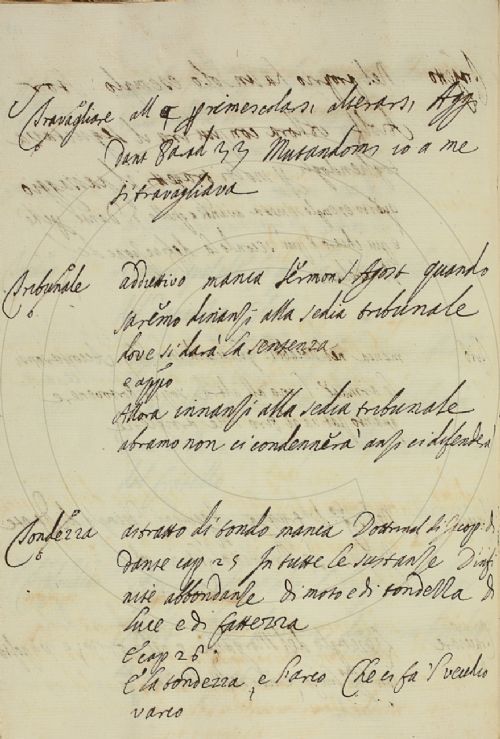 Travagliare all ꝗ p rimescolarsi alterarsi Agg
Dant Parad 33 Mutandom io a me
si travagliava
Tribunale addiettivo manca Sermon S Agost quando
saremo dinanzi alla sedia tribunale
dove si darà la sentenza
e appo
Allora innanzi alla sedia tribunale
abramo non ci condennerà anzi ci difenderà
Tondezza astratto di tondo manca Dottrinal di Jacop di
dante cap 25 In tutte le sustanze D infi
nite abbondanze di moto e di tondezza di
luce e di fattezza
E cap 28
E la tondezza e l arco Che ci fa l vecchio
varco